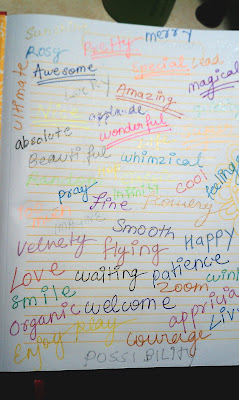 Rosy Pretty merry
ultimate
Awesome special Lead
Lucky Amazing magical
applaude
absolute wonderful
Beautiful whimzical
Random
pray infinity cool feeling
Fine flowery
Smooth
Velvety flying HAPPY
Love waiting patience
smile Zoom
Organic welcome
Enjoy play courage
POSSIBILITY